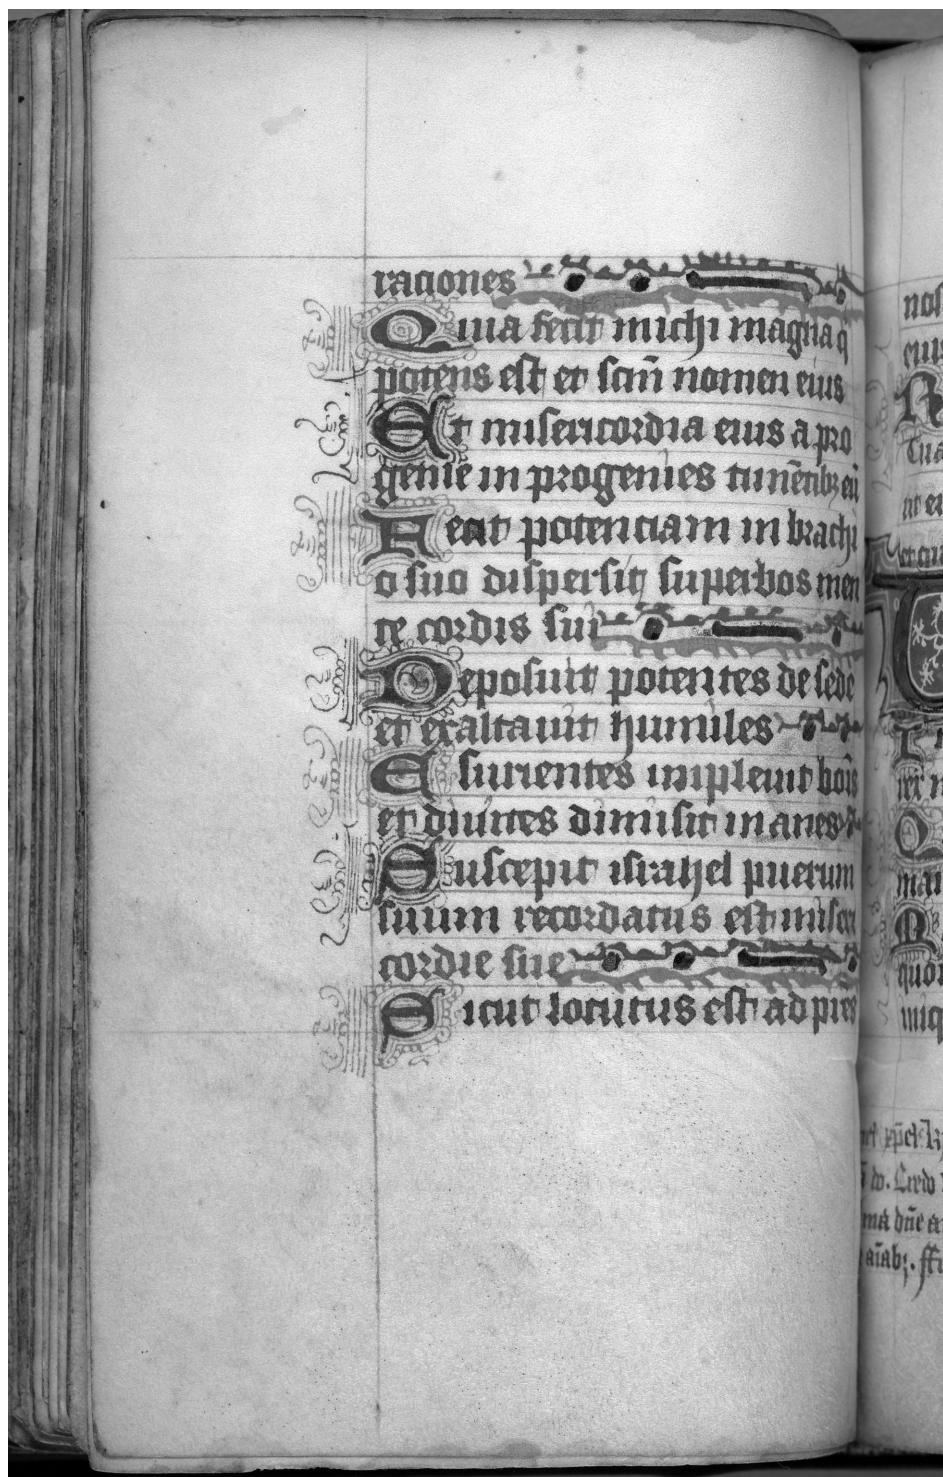 raciones
Quia fecit michi magna q
potens est et scm̄ nomen eius
Et misericordia eius a pro
genie in progenies timētibꝫ eū
Fecit potenciam in brachi
o suo dispersit superbos men
te cordis sui
Deposuit potentes de sede
et exaltauit humiles
Esurientes impleuit bonis
et diuites dimisit inanes
Suscepit israhel puerum
suum recordatus est miseri
cordie sue
Sicut locutus est ad pr̄es